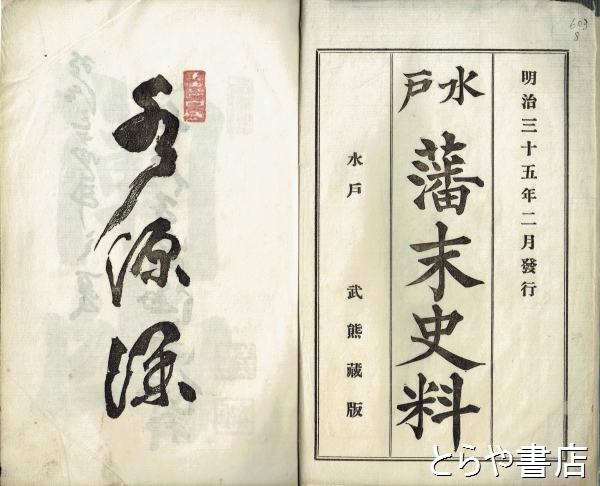 明治三十五年二月發行
水戸
藩末史料
水戸 武熊藏版
源
とらや書店